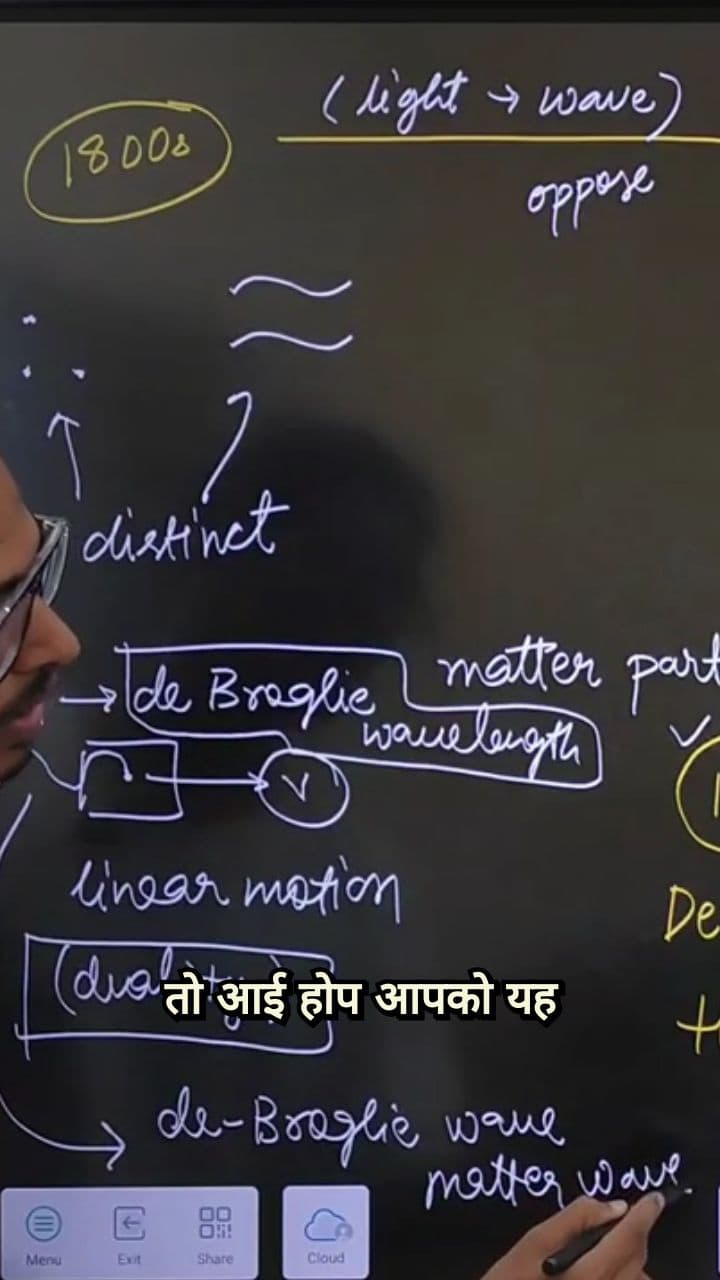 (light → wave)
1800s
oppose
distinct
→ de Broglie wavelength
matter part
V
linear motion
(duality)
De
तो आई होप आपको यह
→ de-Broglie wave
matter wave
Menu Exit Share Cloud